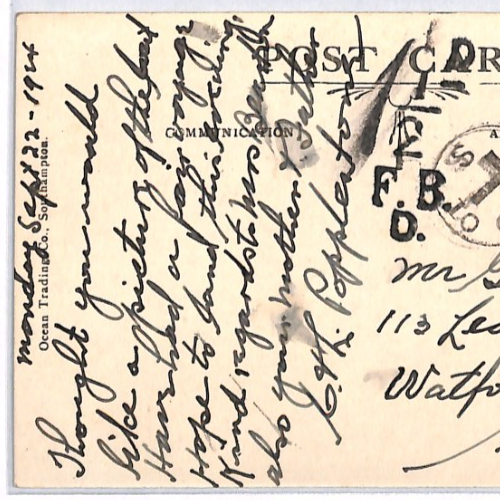 POST CAR
COMMUNICATION
Ocean Trading Co., Southampton.
Monday Sept 22 - 1924
Thought you would
like a picture of the boat
Have had a fair voyage
Hope to land this evening.
Kind regards to Mrs
also your mother & Father
C. H. Poppleton
1D
2
F.B.
D.
Mr
113
Watfo